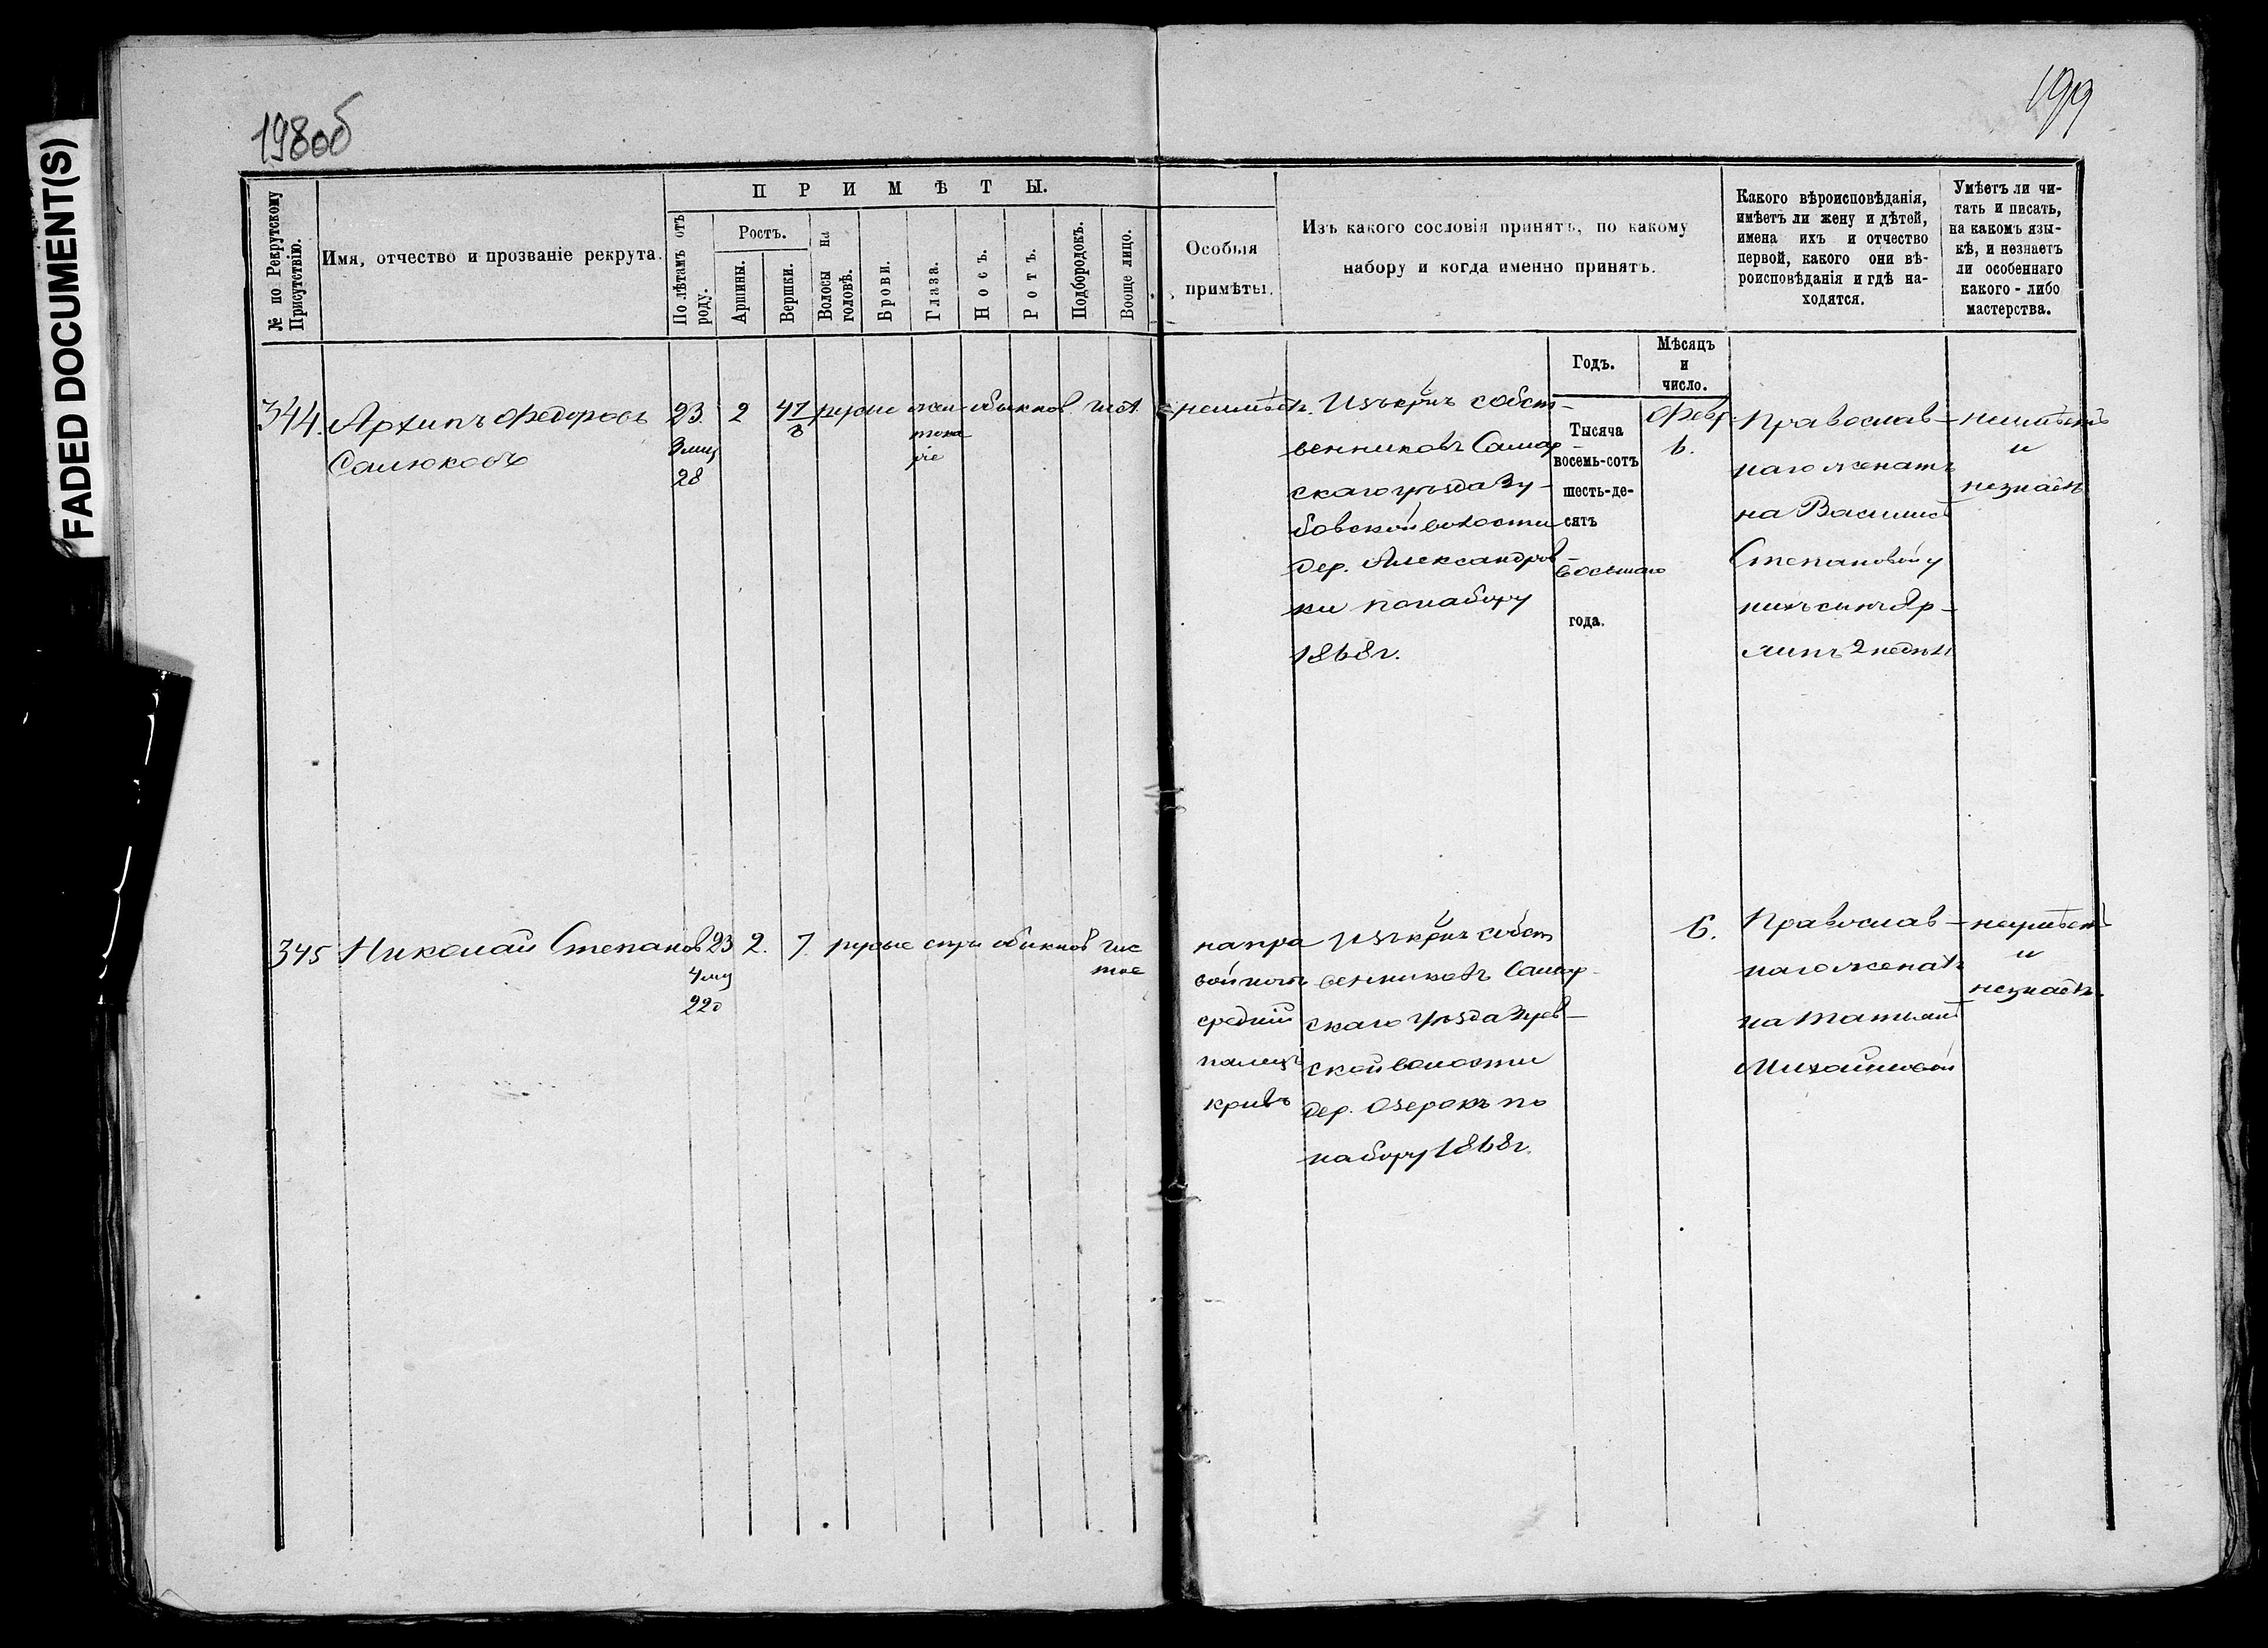 FADED DOCUMENT(S)
198об
199
№ по Рекрутскому Присутствію.
Имя, отчество и прозваніе рекрута.
ПРИМѢТЫ.
По лѣтамъ отъ роду.
Ростъ.
Аршины.
Вершки.
Волосы на головѣ.
Брови.
Глаза.
Носъ.
Ротъ.
Подбородокъ.
Вообще лицо.
Особыя
примѣты.
Изъ какого сословія принятъ, по какому
набору и когда именно принятъ.
Какого вѣроисповѣданія,
имѣетъ ли жену и дѣтей,
имена ихъ и отчество
первой, какого они вѣ-
роисповѣданія и гдѣ на-
ходятся.
Умѣетъ ли чи-
тать и писать,
на какомъ язы-
кѣ, и незнаетъ
ли особеннаго
какого-либо
мастерства.
Годъ.
Мѣсяцъ
и
число.
344. Архипъ Федоровъ
23.
3 мц
28
2
4 7/8
русые
обыкнов.
чист.
неимѣетъ.
Изъ крнъ собст-
венниковъ Самар-
скаго уѣзда Зу-
бовской волости
дер. Александров-
ки по набору
1868 г.
Тысяча
восемь-сотъ
шесть-де-
сятъ
восьмаго
года.
Февр.
6.
Православ-
наго женатъ
на Василисѣ
Степановой у
нихъ сынъ
2 недѣли
неумѣетъ
и
незнаетъ
345 Николай Степановъ
23
4 мц
22 д
2.
7.
русые
сѣры
обыкнов
чис
тое
на пра
вой ногѣ
средній
палецъ
кривъ
Изъ крнъ собст
венниковъ Самар-
скаго уѣзда Зубов-
ской волости
дер. Озерокъ по
набору 1868 г.
6.
Православ-
наго женатъ
на Татьянѣ
Михайловой
неумѣетъ
и
незнаетъ.